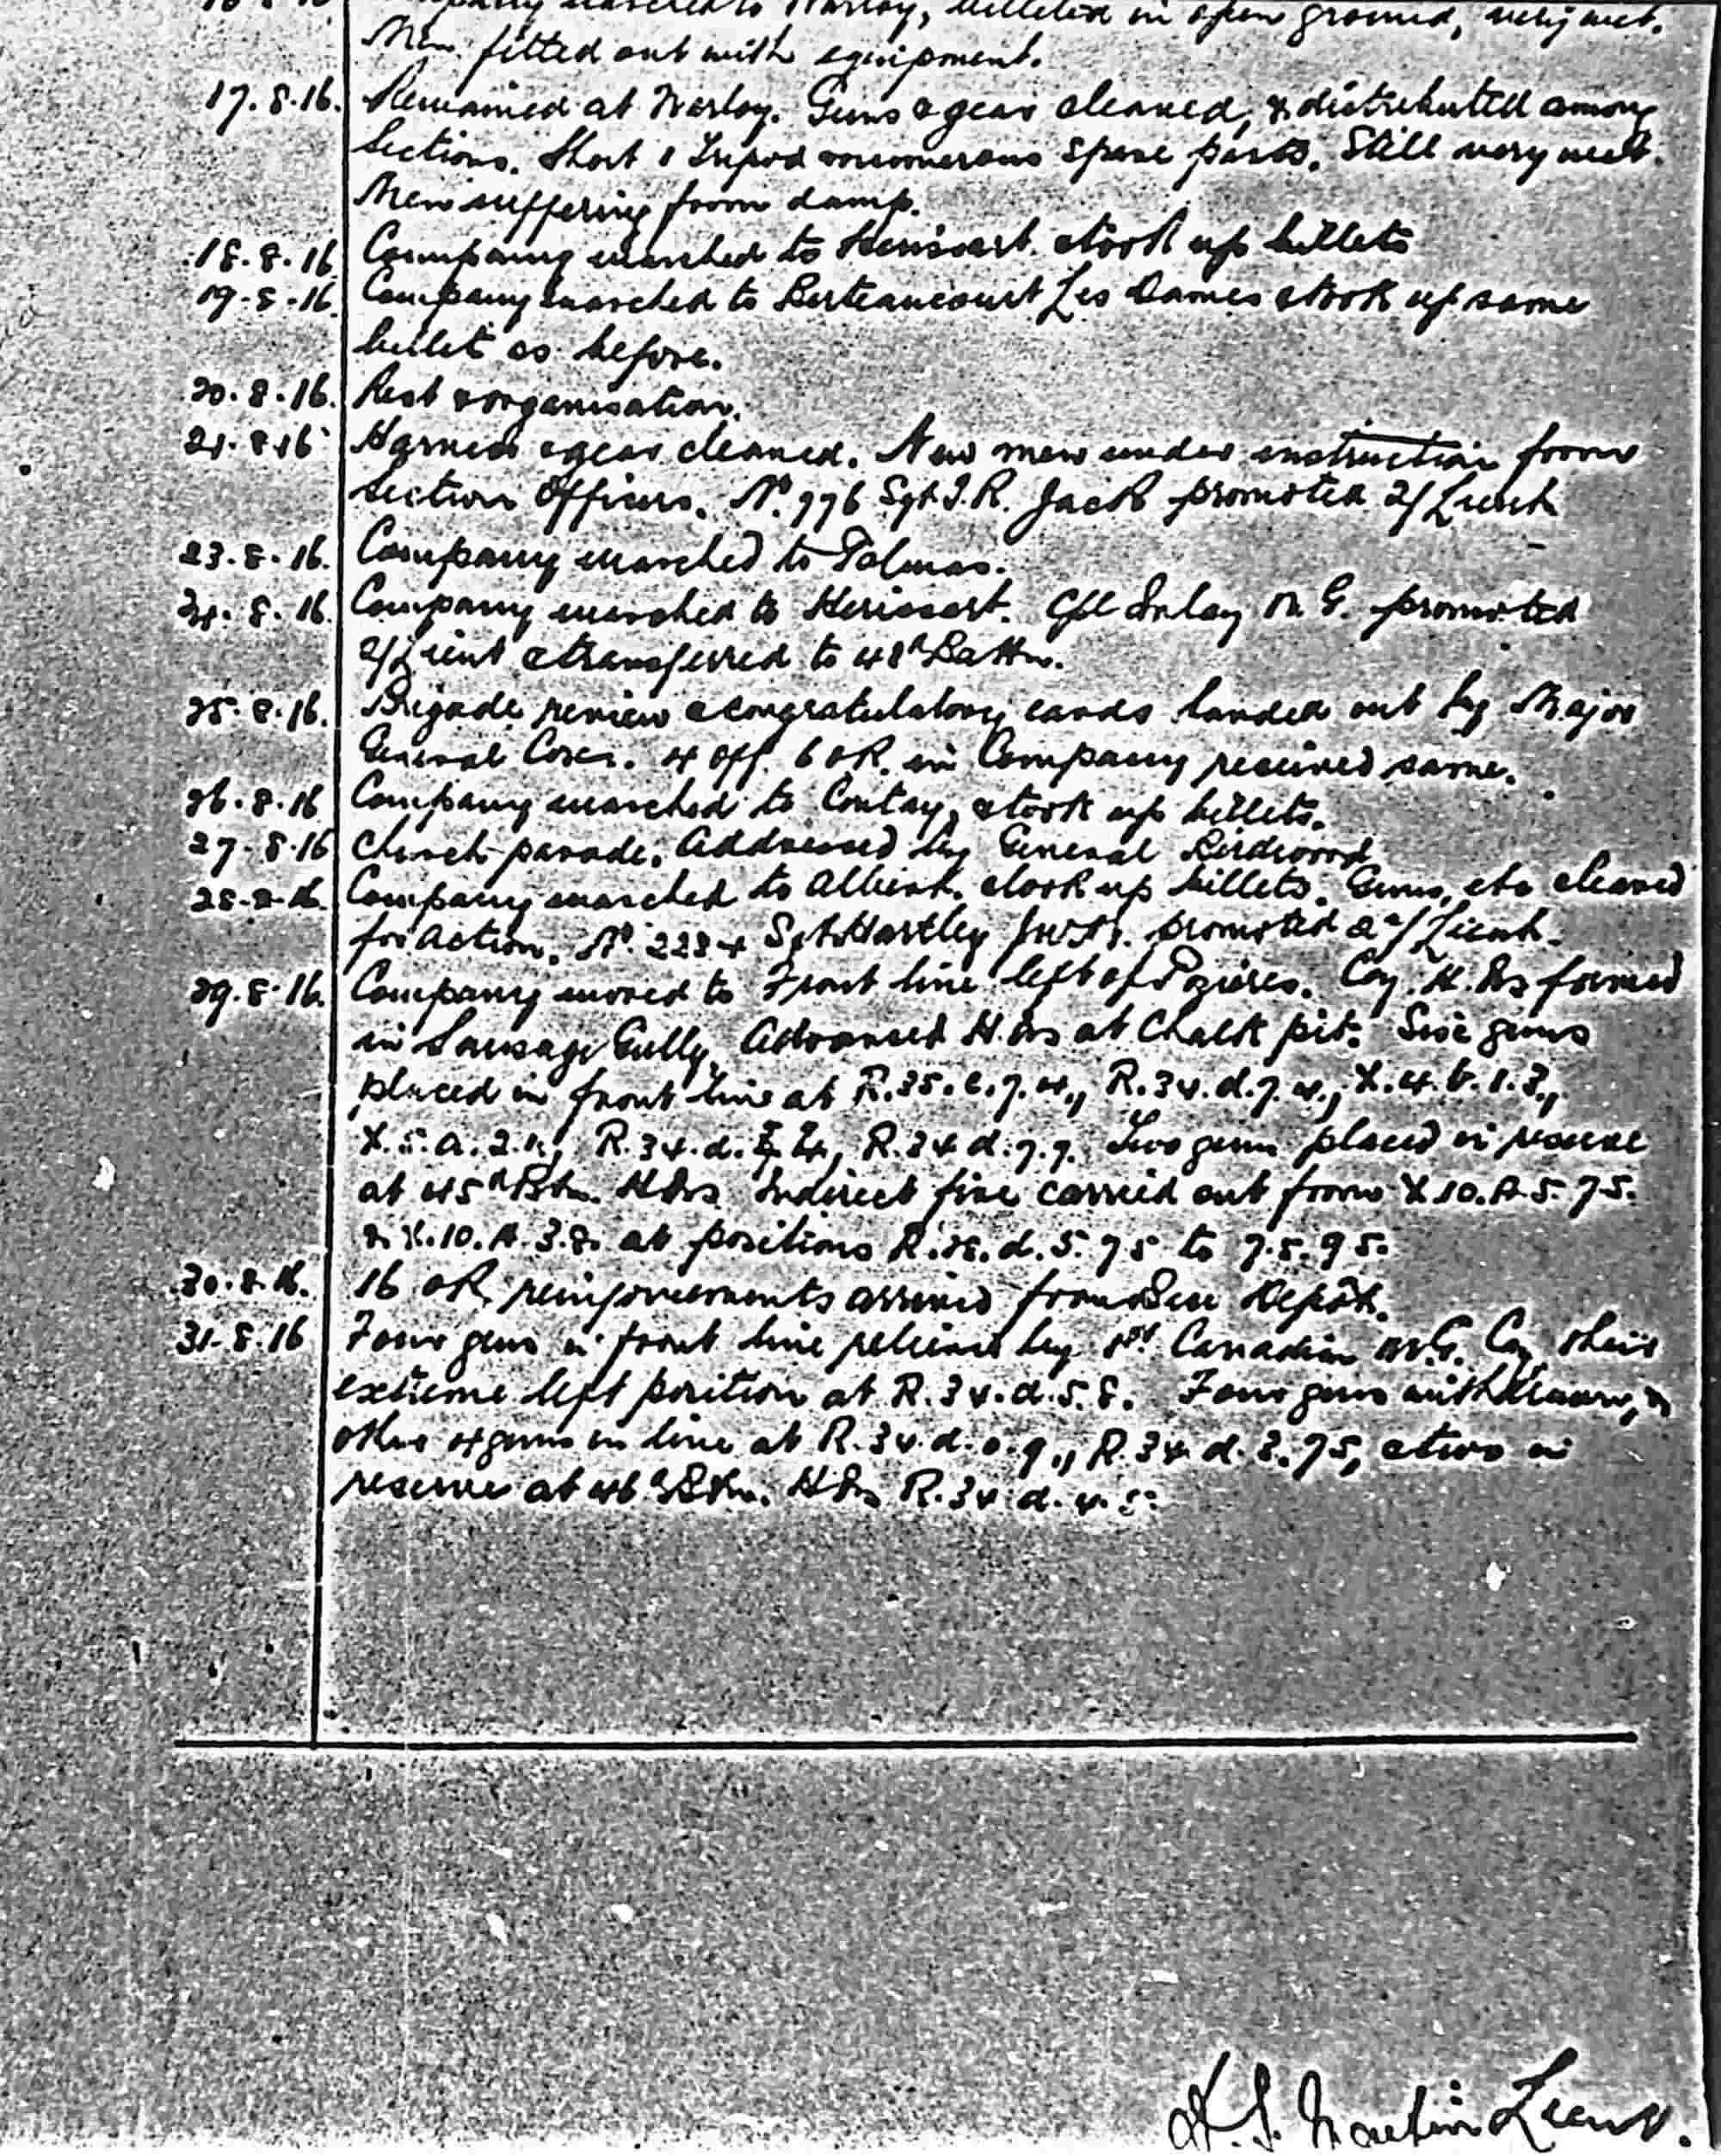 marched to Warloy, billeted in open ground, very wet.
Men fitted out with equipment.
17.8.16. Remained at Warloy. Guns & gear cleaned, & distributed among
Sections. Short 1 Tripod & numerous spare parts. Still very wet.
Men suffering from damp.
18.8.16 Company marched to Herissart. & took up billets
19.8.16. Company marched to Berteaucourt Les Dames & took up same
billet as before.
20.8.16. Rest & organisation.
21.8.16 Harness & gear cleaned. New men under instruction from
Section Officers. No. 776 Sgt J.R. Jack promoted 2/Lieut
23.8.16. Company marched to Talmas.
24.8.16. Company marched to Herissart. Cpl Imlay N.G. promoted
2/Lieut & transferred to 48th Battn.
25.8.16. Brigade review & congratulatory cards handed out by Major
General Cox. 4 off. 6 OR. in Company received same.
26.8.16 Company marched to Contay, & took up billets.
27.8.16 Church parade. Addressed by General Birdwood
28.8.16. Company marched to Albert. & took up billets. Guns, etc cleaned
for Action. No. 2234 Sgt Hartley promoted 2nd/Lieut.
29.8.16. Company moved to Front line left of Pozieres. Coy. H.Qrs formed
in Sausage Gully. Advanced H.Qrs at Chalk pit. Six guns
placed in front line at R.35.c.7.4., R.34.d.7.4., X.4.b.1.3.,
X.5.a.2.1., R.34.d. R.34.d.7.7. Two guns placed in reserve
at 45th Btn. HQrs. Indirect fire carried out from X.10.A.5.75.
& X.10.A.3.8. at positions d.5.75 to 7.5.95.
30.8.16. 16 OR. reinforcements arrived from Base Depôt.
31.8.16 Four guns in front line relieved by 1st Canadian M.G. Coy, their
extreme left position at R.34.d.5.8. Four guns withdrawn, &
other 4 guns in line at R.34.d.0.9., R.34.d.3.75, & two in
reserve at 46th Btn. HQrs R.34.d.4.5.
Martin Lieut.